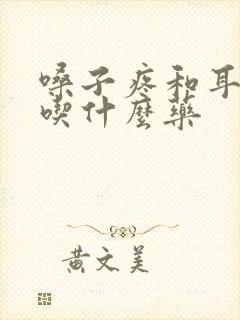 嗓子疼和耳
喫什麼藥
黄文美